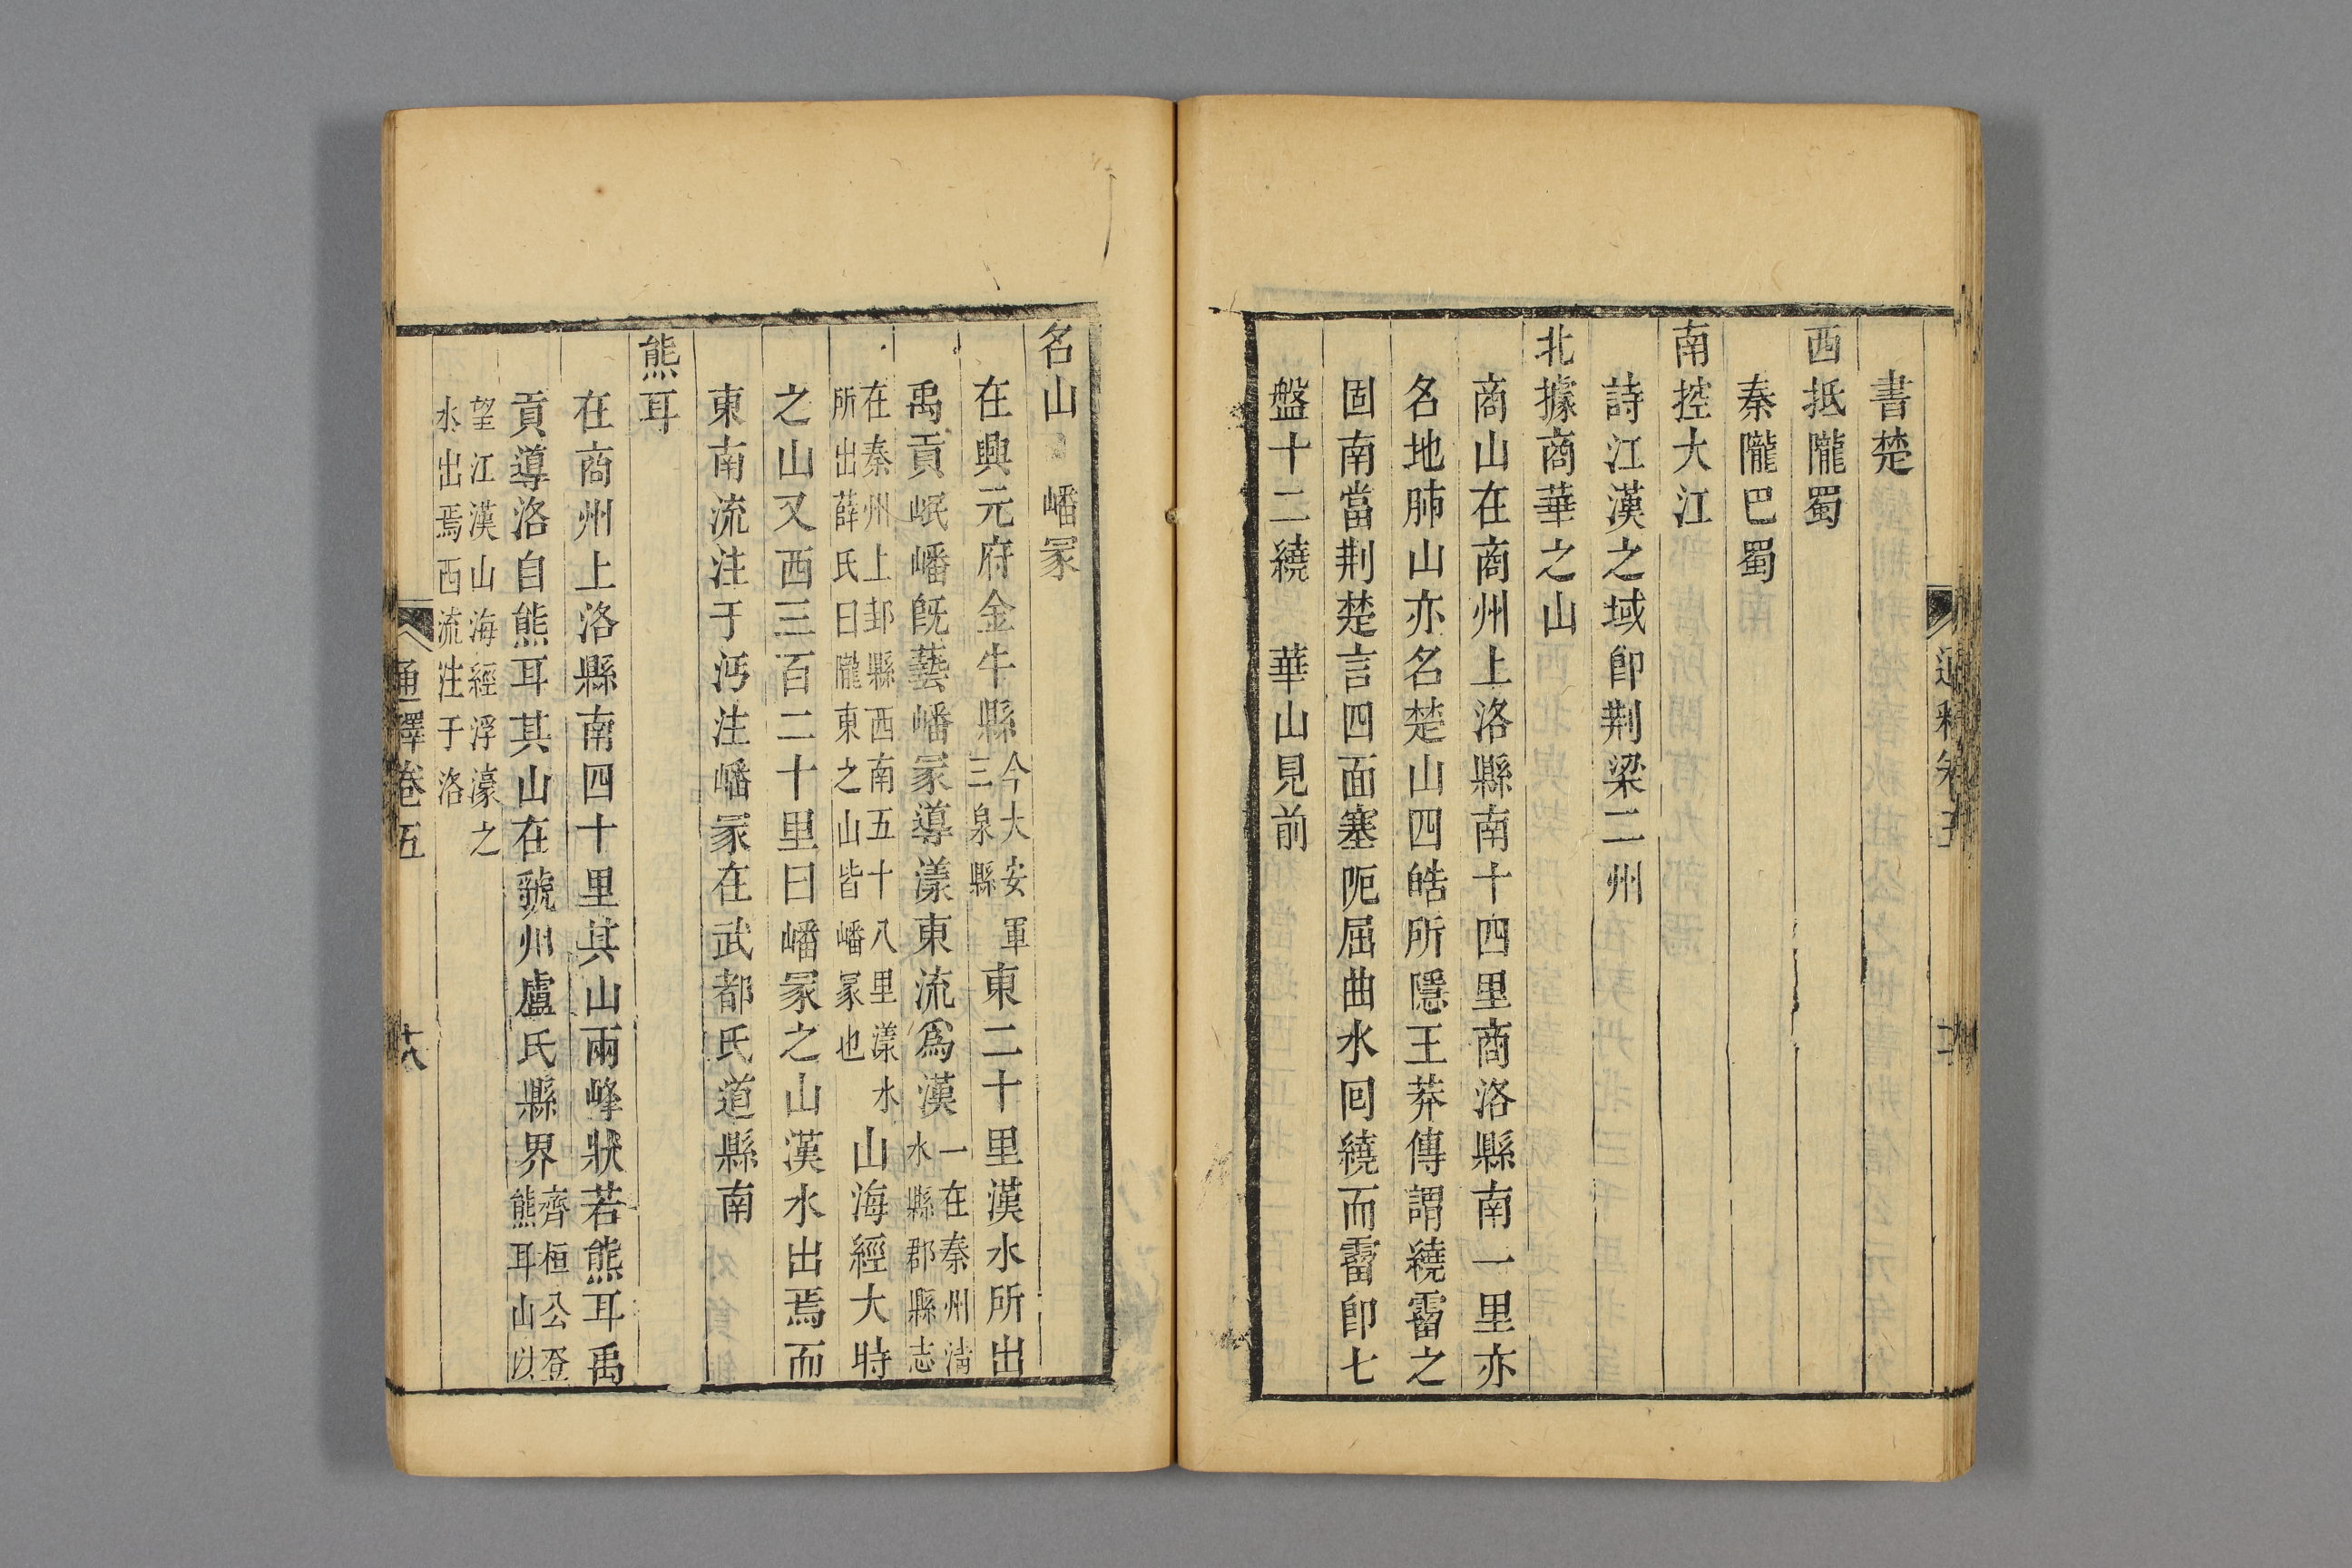 書楚
西抵隴蜀
秦隴巴蜀
南控大江
詩江漢之域卽荆梁二州
北據商華之山
商山在商州上洛縣南十四里商洛縣南一里亦
名地肺山亦名楚山四皓所隱王莽傳謂繞霤之
固南當荆楚言四面塞阨屈曲水回繞而霤卽七
盤十二繞　華山見前
名山　嶓冢
在興元府金牛縣今大安軍三泉縣東二十里漢水所出
禹貢岷嶓旣藝嶓冢導漾東流爲漢一在秦州淸水縣郡縣志
在秦州上邽縣西南五十八里漾水所出薛氏曰隴東之山皆嶓冢也　山海經大時
之山又西三百二十里曰嶓冢之山漢水出焉而
東南流注于沔注嶓冢在武都氐道縣南
熊耳
在商州上洛縣南四十里其山兩峰狀若熊耳禹
貢導洛自熊耳其山在虢州盧氏縣界齊桓公登熊耳山以
望江漢山海經浮濠之水出焉西流注于洛
通釋卷五
十八